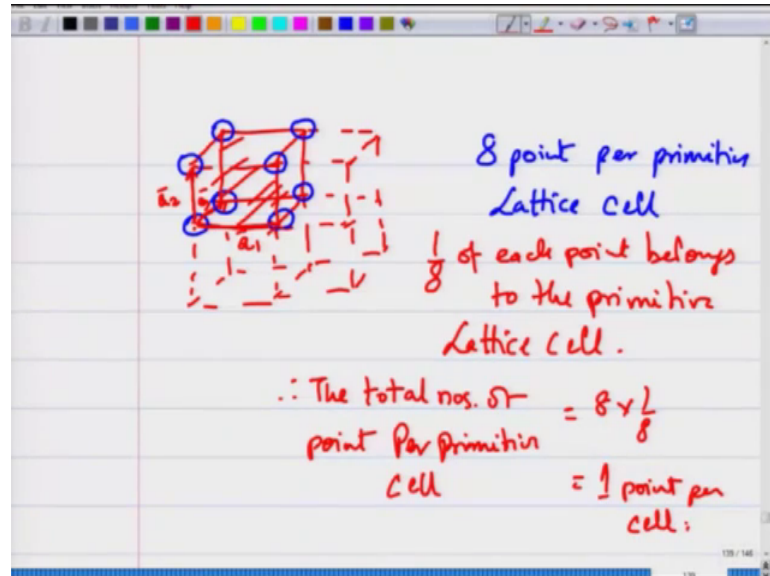 8 point per primitive
Lattice cell
1/8 of each point belongs
to the primitive
Lattice Cell.
∴ The total nos. of = 8 x 1/8
point Per primitive
cell = 1 point per
cell.
ā₂
ā₁
139 / 146